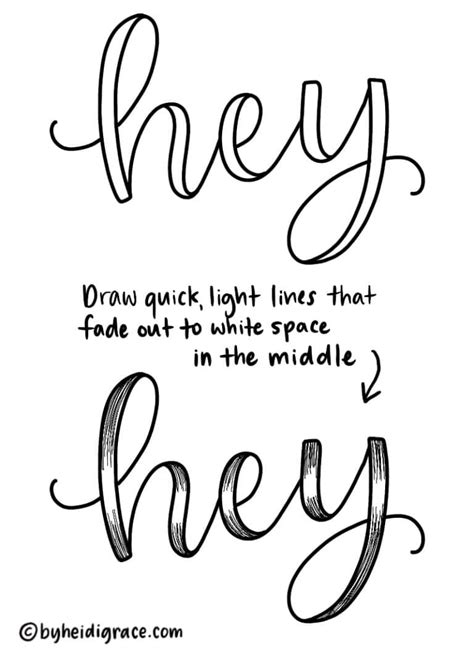 hey
Draw quick, light lines that
fade out to white space
in the middle
hey
©byheidigrace.com